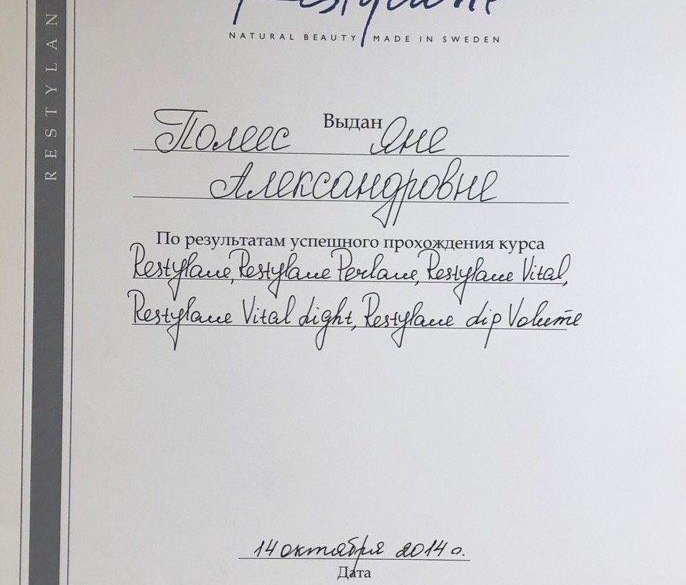 Restylane
NATURAL BEAUTY MADE IN SWEDEN
RESTYLAN
Выдан
Полеес Яне
Александровне
По результатам успешного прохождения курса
Restylane, Restylane Perlane, Restylane Vital,
Restylane Vital Light, Restylane dip Volume
14 октября 2014 г.
Дата